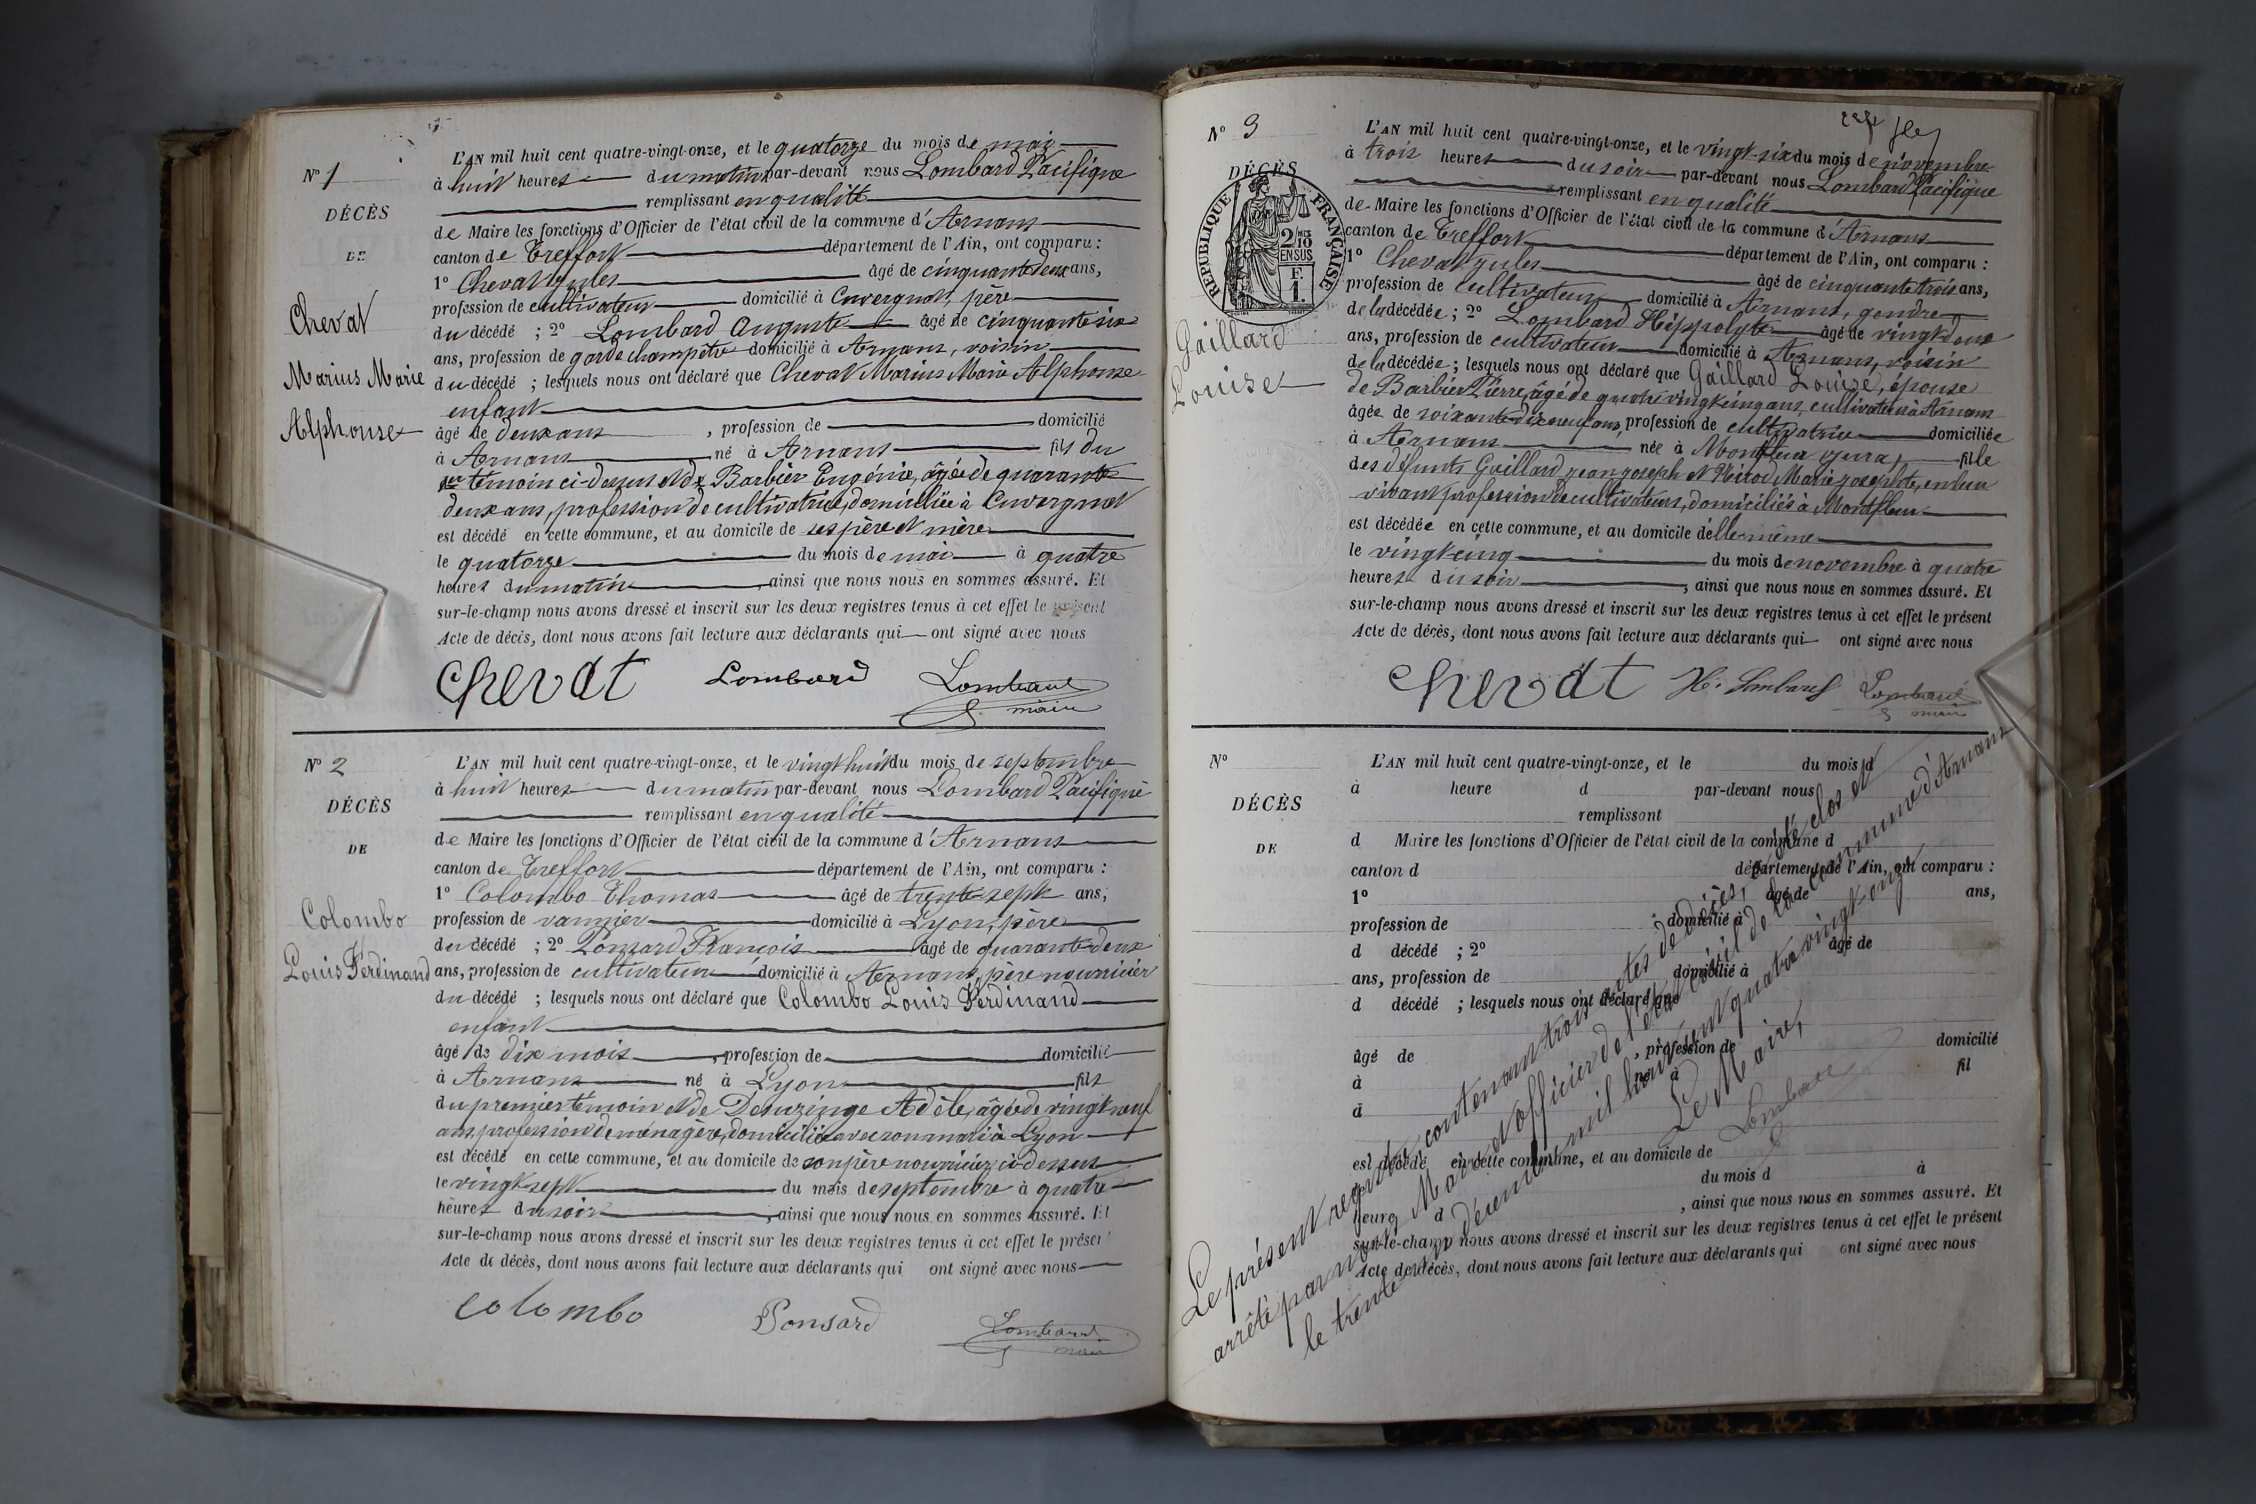 N° 1
DÉCÈS
DE
Chevat
Marius Marie
Alphonse
L'AN mil huit cent quatre-vingt-onze, et le quatorze du mois de mai
à huit heures du matin par-devant nous Lombard Pacifique
remplissant en qualité
de Maire les fonctions d'Officier de l'état civil de la commune d'Arnans
canton de Treffort département de l'Ain, ont comparu :
1° Chevat Jules âgé de cinquante deux ans,
profession de cultivateur domicilié à Cuvergnat, père
du décédé ; 2° Lombard Auguste âgé de cinquante six
ans, profession de garde champêtre domicilié à Arnans, voisin
du décédé ; lesquels nous ont déclaré que Chevat Marius Marie Alphonse
enfant
âgé de deux ans , profession de domicilié
à Arnans né à Arnans fils du
1er témoin ci-dessus et de Barbier Eugénie, âgée de quarante
deux ans, profession de cultivatrice, domiciliée à Cuvergnat
est décédé en cette commune, et au domicile de ses père et mère
le quatorze du mois de mai à quatre
heures du matin , ainsi que nous nous en sommes assuré. Et
sur-le-champ nous avons dressé et inscrit sur les deux registres tenus à cet effet le présent
Acte de décès, dont nous avons fait lecture aux déclarants qui ont signé avec nous
Chevat Lombard Lombard
maire
N° 2
DÉCÈS
DE
Colombo
Louis Ferdinand
L'AN mil huit cent quatre-vingt-onze, et le vingt huit du mois de septembre
à huit heures du matin par-devant nous Lombard Pacifique
remplissant en qualité
de Maire les fonctions d'Officier de l'état civil de la commune d'Arnans
canton de Treffort département de l'Ain, ont comparu :
1° Colombo Thomas âgé de trente sept ans,
profession de vannier domicilié à Lyon, père
du décédé ; 2° Ponsard François âgé de quarante-deux
ans, profession de cultivateur domicilié à Arnans, père nourricier
du décédé ; lesquels nous ont déclaré que Colombo Louis Ferdinand
enfant
âgé de dix mois , profession de domicilié
à Arnans né à Lyon fils
du premier témoin et de Desuzinge Adèle, âgée de vingt neuf
ans, profession de ménagère, domiciliée avec son mari à Lyon
est décédé en cette commune, et au domicile de son père nourricier ci-dessus
le vingt sept du mois de septembre à quatre
heures du soir , ainsi que nous nous en sommes assuré. Et
sur-le-champ nous avons dressé et inscrit sur les deux registres tenus à cet effet le présent
Acte de décès, dont nous avons fait lecture aux déclarants qui ont signé avec nous
Colombo Ponsard Lombard
maire
N° 3
DÉCÈS
RÉPUBLIQUE FRANÇAISE
2/10 EN SUS
F. 1.
Gaillard
Louise
L'AN mil huit cent quatre-vingt-onze, et le vingt-six du mois de novembre
à trois heures du soir par-devant nous Lombard Pacifique
remplissant en qualité
de Maire les fonctions d'Officier de l'état civil de la commune d'Arnans
canton de Treffort département de l'Ain, ont comparu :
1° Chevat Jules âgé de cinquante trois ans,
profession de cultivateur domicilié à Arnans, gendre
de la décédée ; 2° Lombard Hippolyte âgé de vingt deux
ans, profession de cultivateur domicilié à Arnans, voisin
de la décédée ; lesquels nous ont déclaré que Gaillard Louise, épouse
de Barbier Pierre, âgé de quatre vingt cinq ans, cultivateur à Arnans
âgée de soixante-dix neuf ans, profession de cultivatrice domiciliée
à Arnans née à Montfleur Jura, fille
des défunts Gaillard Jean Joseph et Nicod Marie Josephte, en leur
vivant profession de cultivateurs, domiciliés à Montfleur
est décédée en cette commune, et au domicile d'elle même
le vingt cinq du mois de novembre à quatre
heures du soir , ainsi que nous nous en sommes assuré. Et
sur-le-champ nous avons dressé et inscrit sur les deux registres tenus à cet effet le présent
Acte de décès, dont nous avons fait lecture aux déclarants qui ont signé avec nous
Chevat H. Lombard Lombard
maire
N°
DÉCÈS
DE
L'AN mil huit cent quatre-vingt-onze, et le du mois d
à heure d par-devant nous
remplissant
d Maire les fonctions d'Officier de l'état civil de la commune d
canton d département de l'Ain, ont comparu :
1° âgé de ans,
profession de domicilié à
d décédé ; 2° âgé de
ans, profession de domicilié à
d décédé ; lesquels nous ont déclaré que
âgé de , profession de domicilié
à né à fil
d
est décédé en cette commune, et au domicile de
du mois d à
heure d , ainsi que nous nous en sommes assuré. Et
sur-le-champ nous avons dressé et inscrit sur les deux registres tenus à cet effet le présent
Acte de décès, dont nous avons fait lecture aux déclarants qui ont signé avec nous
Le présent registre contenant trois actes de décès, a été clos et
arrêté par nous, Maire et officier de l'état civil de la commune d'Arnans
le trente décembre mil huit cent quatre vingt onze
Le Maire,
Lombard